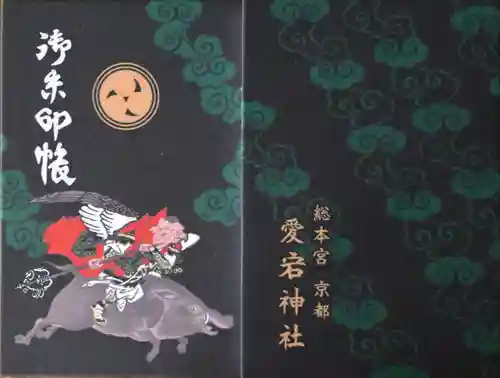 御朱印帳
総本宮 京都
愛宕神社